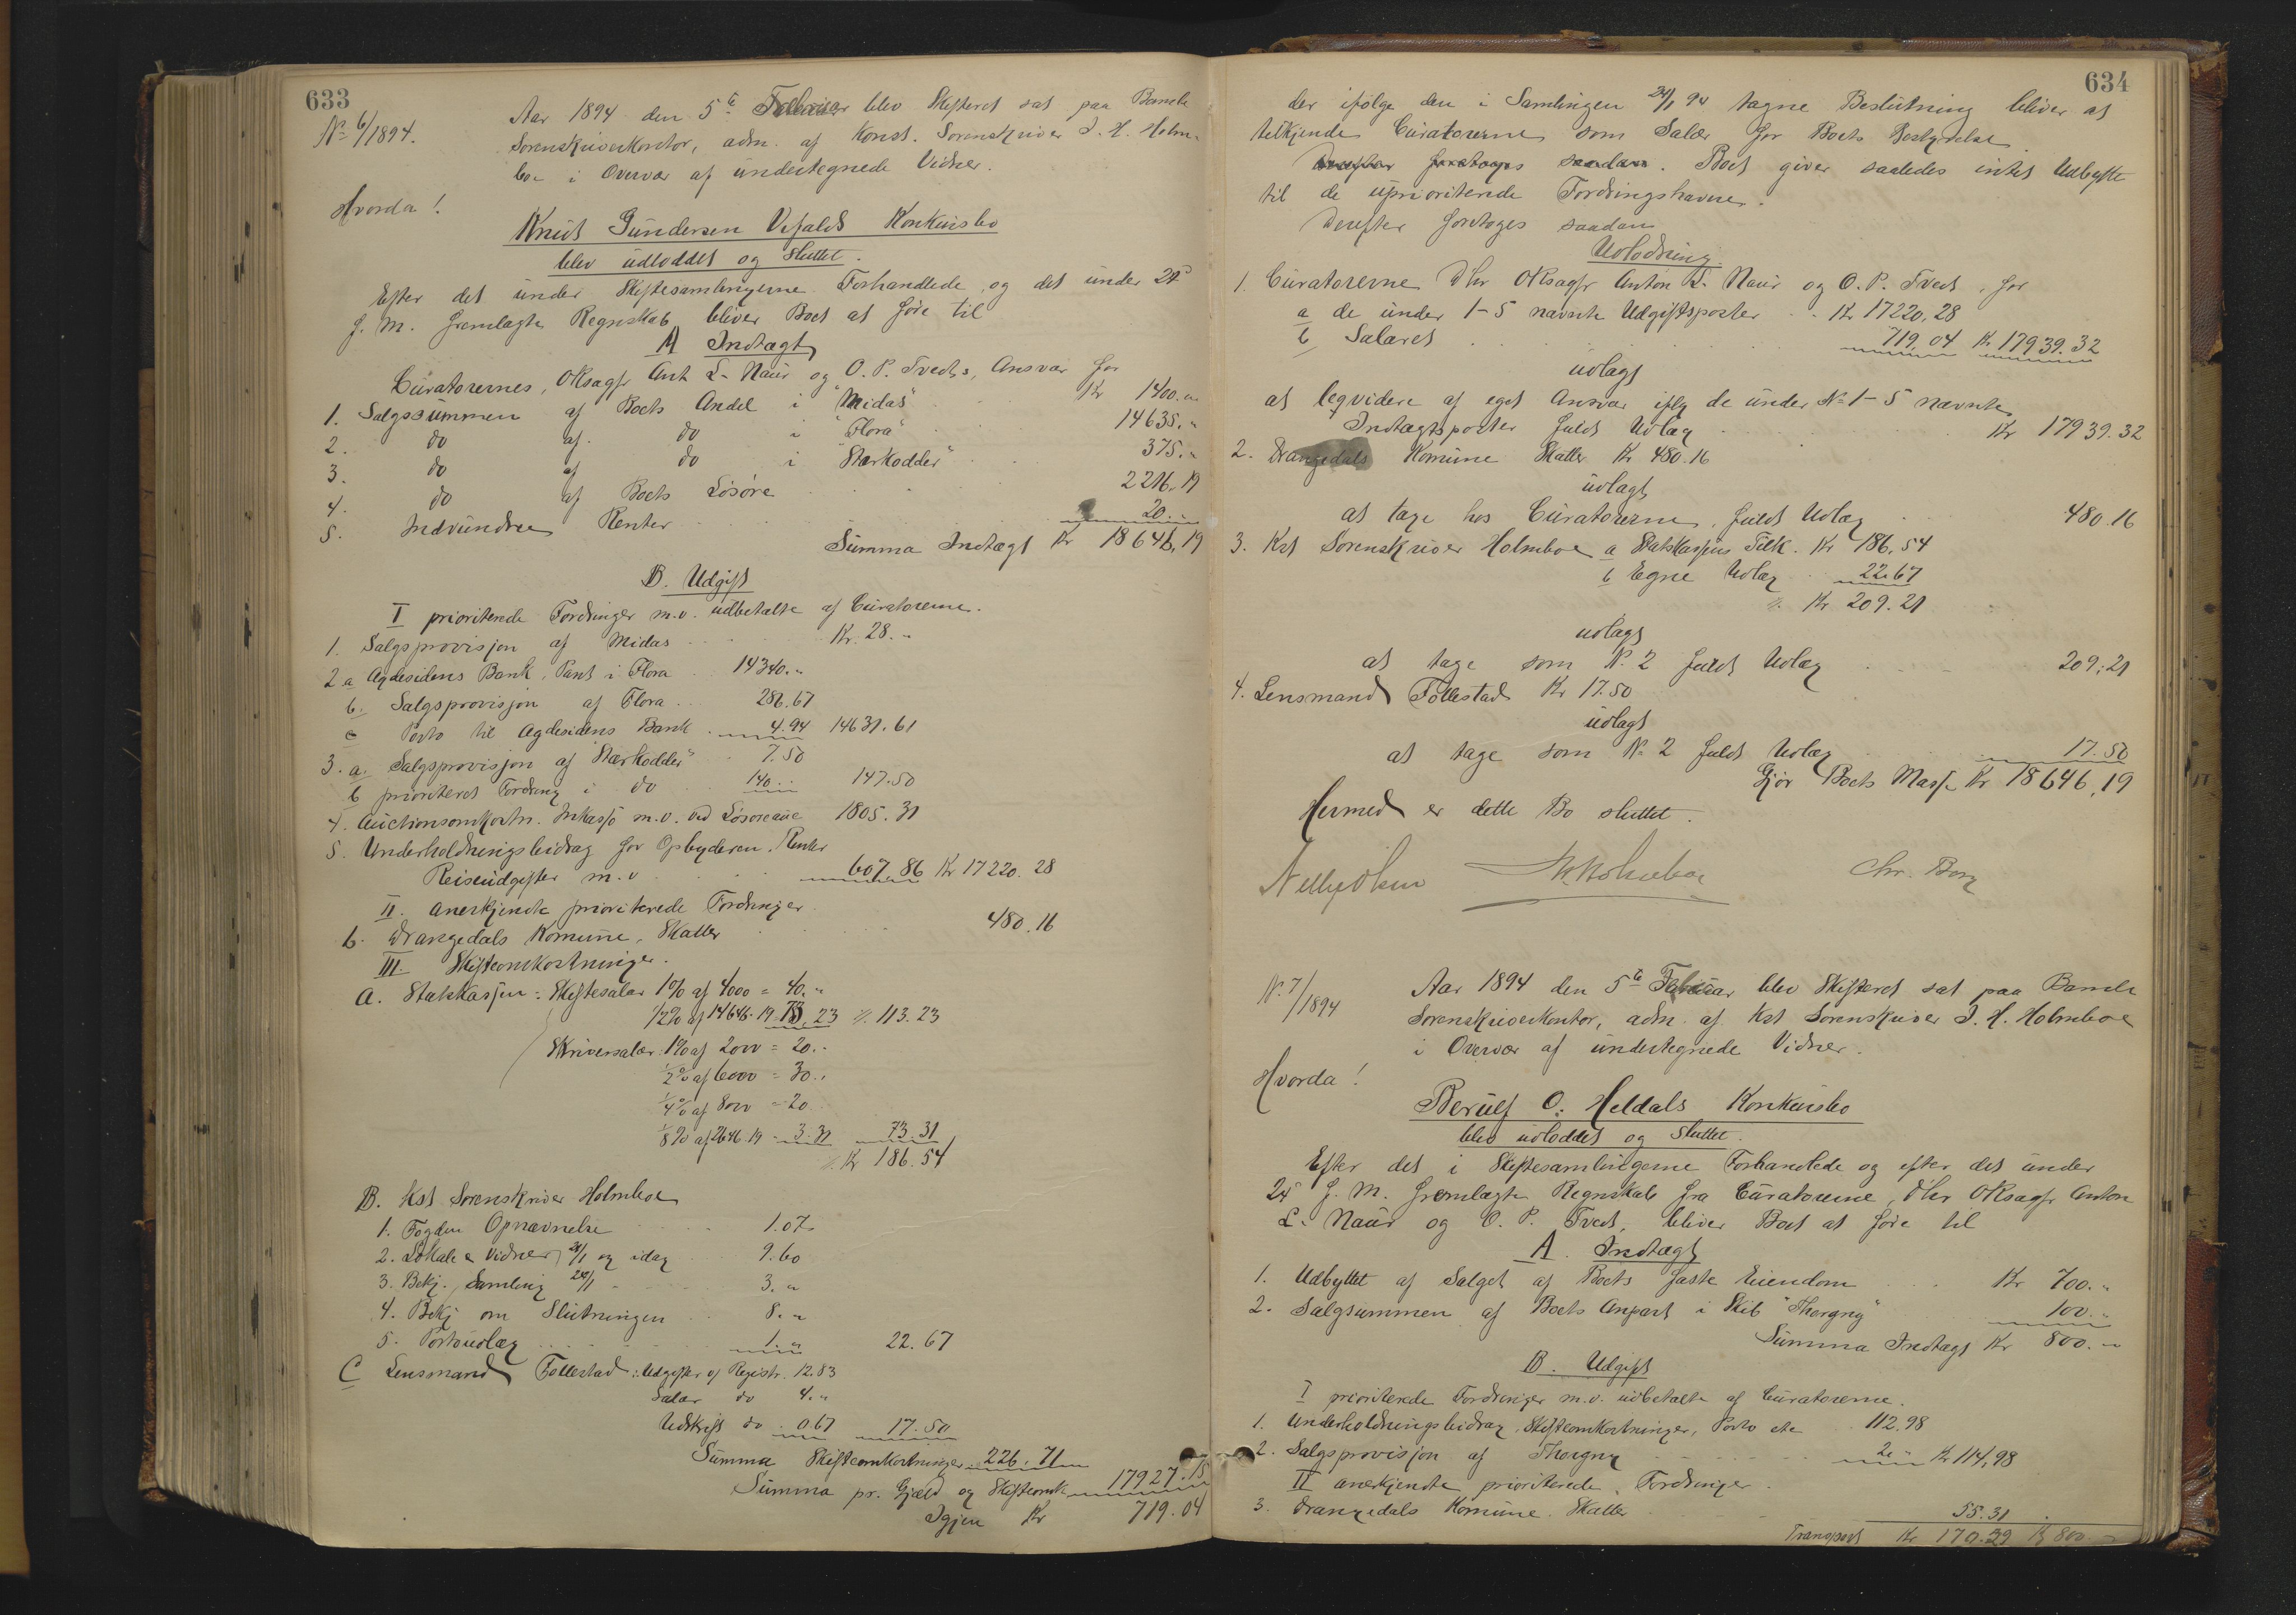 633
Nº 6/1894.
Aar 1894 den 5te Februar blev Skifteret sat paa Bamble
Sorenskriverkontor, adm. af Konst. Sorenskriver J. H. Holm-
boe i Overvær af undertegnede Vidner.
Hvorda!
Knud Gundersen Vefalds Konkursbo
blev udloddet og sluttet.
Efter det under Skiftesamlingerne Forhandlede, og det under 24de
f. M. fremlagte Regnskab bliver Boet at føre til
A Indtægt
Curatorernes, OKsagfr Ant. L. Naur og O. P. Tvedts, Ansvar for
1. Salgssummen af Boets Andel i "Midas" Kr 1400. "
2. do af do i "Flora" 14635. "
3. do af do i "Stærkodder" 375. "
4. do af Boets Løsøre 2216.19
5. Indvundne Renter 20. "
Summa Indtægt Kr 18646,19
B. Udgift
I prioriterede Fordringer m.v. udbetalte af Curatorerne.
1. Salgsprovisjon af Midas Kr. 28. "
2 a Agdesidens Bank, Pant i Flora 14340. "
b. Salgsprovisjon af Flora 286.67
c Porto til Agdesidens Bank 4.94 14631.61
3. a. Salgsprovisjon af "Stærkodder" 7.50
b prioriteret Fordring i do 140. " 147.50
4. Auctionsomkostn. Inkasso m.v. ved Løsøreauc 1805.31
5. Underholdningsbidrag for Opbyderen, Renter
Reiseudgifter m.v 607.86 Kr 17220.28
II. Anerkjendte prioriterede Fordringer
6. Drangedals Komune, Skatter 480.16
III. Skifteomkostninger.
A. Statskassen: Skiftesalær 1% af 4000 = 40. "
1/2% af 14646.19 = 73,23 113.23
Skriversalær: 1% af 2000 = 20. "
1/2% af 6000 = 30. "
1/4% af 8000 = 20
1/8% af 2646.19 = 3.31 73.31
Kr 186.54
B. Kst Sorenskriver Holmboe
1. Fogden Opnævnelse 1.07
2. Lokale & Vidner 24/1 og idag 9.60
3. Bekj., Samling 24/1 3. "
4. Bekj om Slutningen 8. "
5. Portoudlæg 1. " 22.67
C Lensmand Follestad: Udgifter v/ Registr. 12.83
Salær do 4. "
Udskrift do 0.67 17.50
Summa Skifteomkostninger 226.71
Summa pr. Gjæld og Skifteomk 17927.15
Igjen Kr 719.04
634
der ifølge den i Samlingen 24/1 94 tagne Beslutning bliver at
tilkjende Curatorerne som Salær for Boets Bestyrelse.
Derefter foretages saadan. Boet giver saaledes intet Udbytte
til de uprioriterede Fordringshavere.
Derefter foretages saadan
Udlodning.
1. Curatorerne Dhr OKsagfr Anton L. Naur og O. P. Tvedt, for
a de under 1-5 nævnte Udgiftsposter Kr 17220,28
b Salæret 719.04 Kr. 17939.32
udlagt
at leqvidere af eget Ansvar iflg de under Nº 1-5 nævnte
Indtægtsposter fuldt Udlæg Kr 17939.32
2. Drangedals Komune Skatter Kr 480.16
udlagt
at tage hos Curatorerne, fuldt Udlæg 480.16
3. Kst Sorenskriver Holmboe a Statskassens Tilk. Kr 186,54
b Egne Udlæg 22.67
Kr 209.21
udlagt
at tage som Nº 2 fuldt Udlæg 209.21
4. Lensmand Follestad Kr 17.50
udlagt
at tage som Nº 2 fuldt Udlæg 17.50
Gjør Boets Masse Kr 18646,19
Hermed er dette Bo sluttet.
J. H. Holmboe Chr. Borg
Nº 7/1894
Aar 1894 den 5te Februar blev Skifteret sat paa Bamble
Sorenskriverkontor, adm. af Kst Sorenskriver J. H. Holmboe
i Overvær af undertegnede Vidner.
Hvorda!
Berulf O. Heldals Konkursbo
blev udloddet og sluttet.
Efter det i Skiftesamlingerne Forhandlede og efter det under
24de f. M. fremlagte Regnskab fra Curatorerne, Dhr OKsagfr Anton
L. Naur og O. P. Tvedt, bliver Boet at føre til
A. Indtægt
1. Udbyttet af Salget af Boets faste Eiendom Kr 700. "
2. Salgsummen af Boets Anpart i Skib "Thorgny" 100. "
Summa Indtægt Kr 800. "
B. Udgift
I prioriterede Fordringer m.v. udbetalte af Curatorerne.
1. Underholdningsbidrag, Skifteomkostninger, Porto etc 112.98
2. Salgsprovisjon af Thorgny 2. " Kr 114,98
II anerkjendte prioriterede Fordringer.
3. Drangedals Komune. Skatter 55.31
Transport Kr 170.29 Kr 800. "